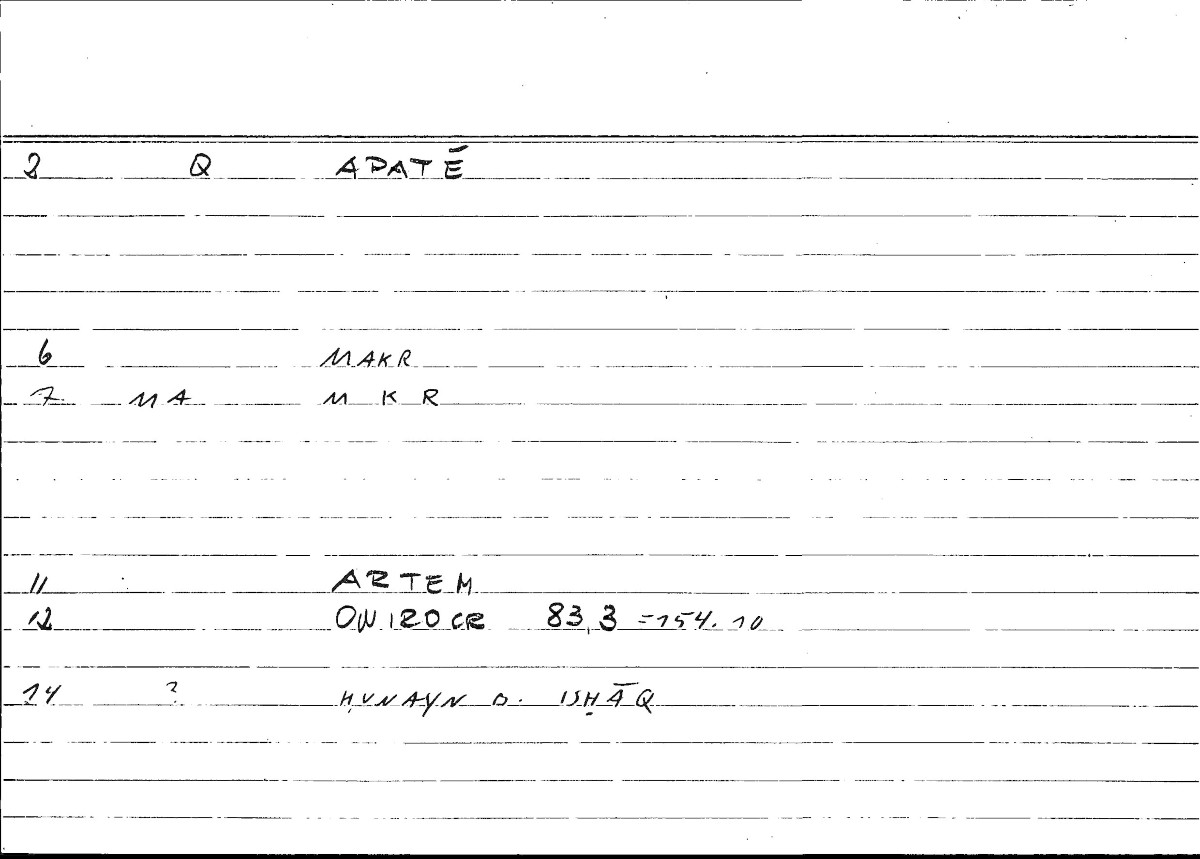 2 Q APATĒ
6 MAKR
7 MA M K R
11 ARTEM
12 ONIROCR 83,3 =154.10
14 ? ḤUNAYN B. ISḤĀQ